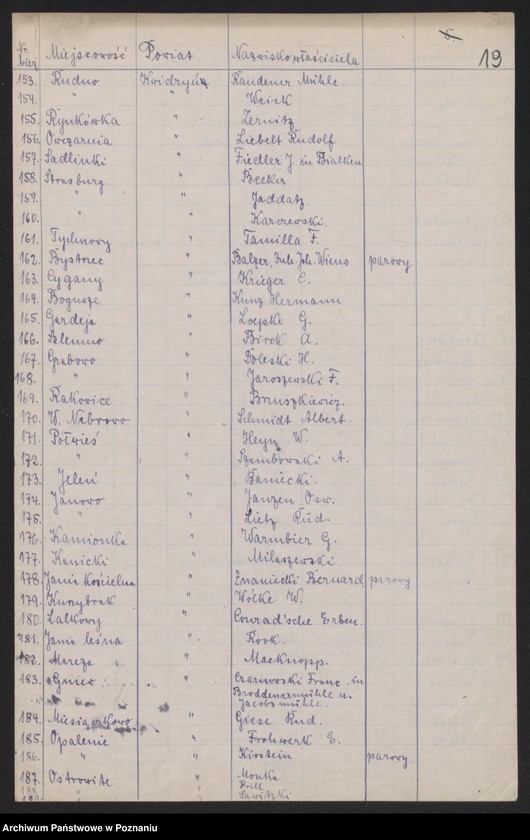 19
Nr bież. Miejscowość Powiat Nazwisko właściciela
153. Rudno Kwidzyn Raudener Mühle.
154. " " Weick
155. Rynkówka " Zernitz
156. Owczarnia " Liebelt Rudolf
157. Sadlinki " Fiedler J. in Bialken
158. Strasburg " Becker
159. " " Jaddatz.
160. " " Karczewski.
161. Tychnowy " Tamilla F.
162. Bystrzec " Balzer, Joh. Wiens parowy
163. Cygany " Krieger C.
164. Bogusze " Kunz Hermann
165. Gardeja " Loepke G.
166. " A.
167. Grabowo " H.
168. " " Jaroszewski F.
169. Rakowice " Bruszkiewicz.
170. W. Nebrowo " Schmidt Albert.
171. Półwieś " Heyn W.
172. " " Szemborski A.
173. Jeleń " Baniecki.
174. Janowo " Janzen Osw.
175. " " Lietz Rud.
176. Kamionka " Warmbier G.
177. Kanicki " Milaszewski.
178. Jania Kościelna " Znaniecki Bernard parowy
179. Kurzybrak " Wölke W.
180. Lalkowy " Conrad'sche Erben.
181. Jania leśna " Rook.
182. Mareza " Macknopp.
183. Gniew " Czarnowski Franc. in
Broddenermühle u.
Jacobsmühle.
184. Miesiączkowo " Giese Rud.
185. Opalenie " Frohwerk E.
186. " " Kirstein parowy
187. Ostrowite " Monka
188. Prill
189. " " Sawitzki
Archiwum Państwowe w Poznaniu